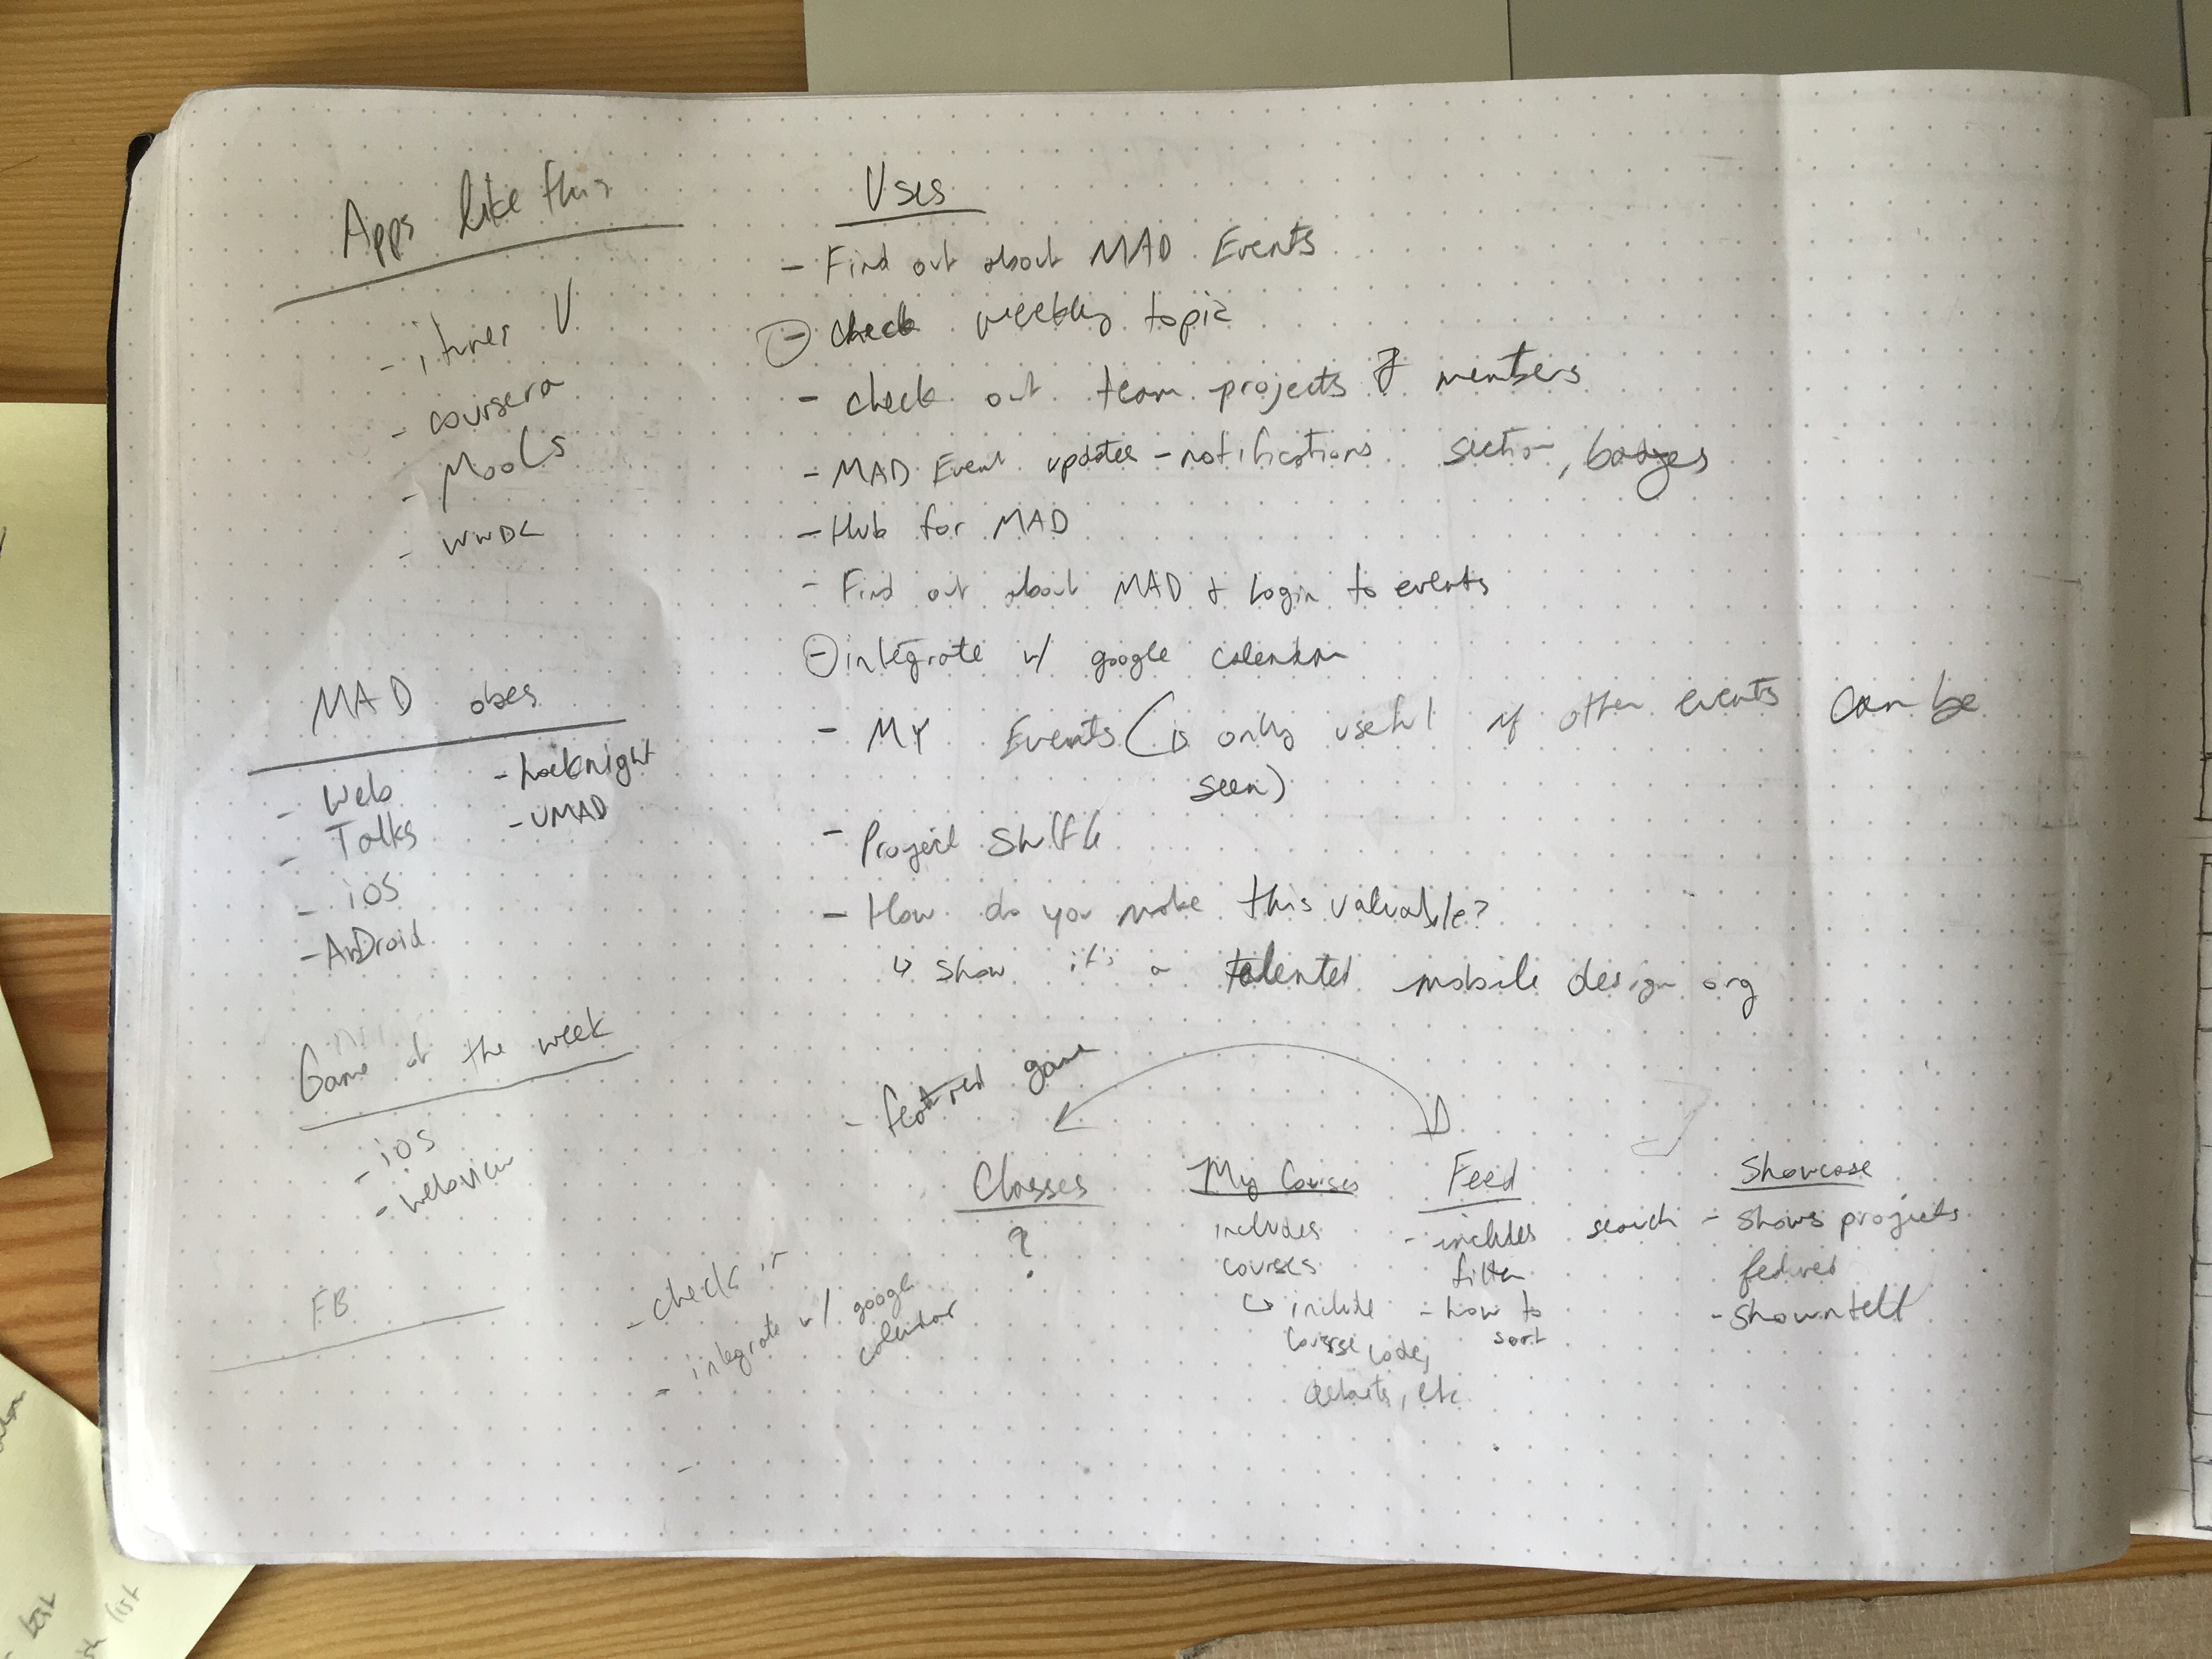 Apps like this
- itunes U
- coursera
- MooCs
- WWDC
MAD does
- Web
- Talks
- iOS
- AnDroid
- hacknight
- UMAD
Game of the week
- iOS
- webview
FB
Uses
- Find out about MAD Events
- check weekly topic
- check out team projects & members
- MAD Event updates - notifications section, badges
- Hub for MAD
- Find out about MAD + Login to events
- integrate w/ google calendar
- MY Events (is only useful if other events can be
seen)
- Project
- How do you make this valuable?
↳ show it's a talented mobile design org
- featured game
- check in
- integrate w/ google
calendar
-
Classes
?
My Courses
includes
courses
↳ include
course code,
etc
Feed
- includes search
filter
- how to
sort
Showcase
- shows projects
- shown tell
list